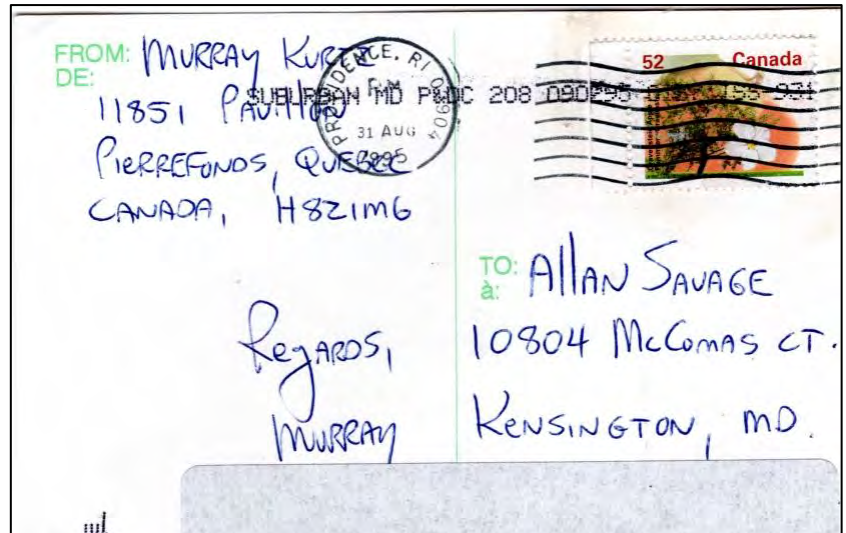 FROM: MURRAY KURTZ
DE:
11851 PAVILLON
PIERREFONDS, QUEBEC
CANADA, H8Z1M6
PROVIDENCE, RI 02904
PM
31 AUG
1995
SUBURBAN MD P&DC 208 090295
52 Canada
TO: Allan SAVAGE
à:
10804 McComas CT.
KENSINGTON, MD.
Regards,
MURRAY